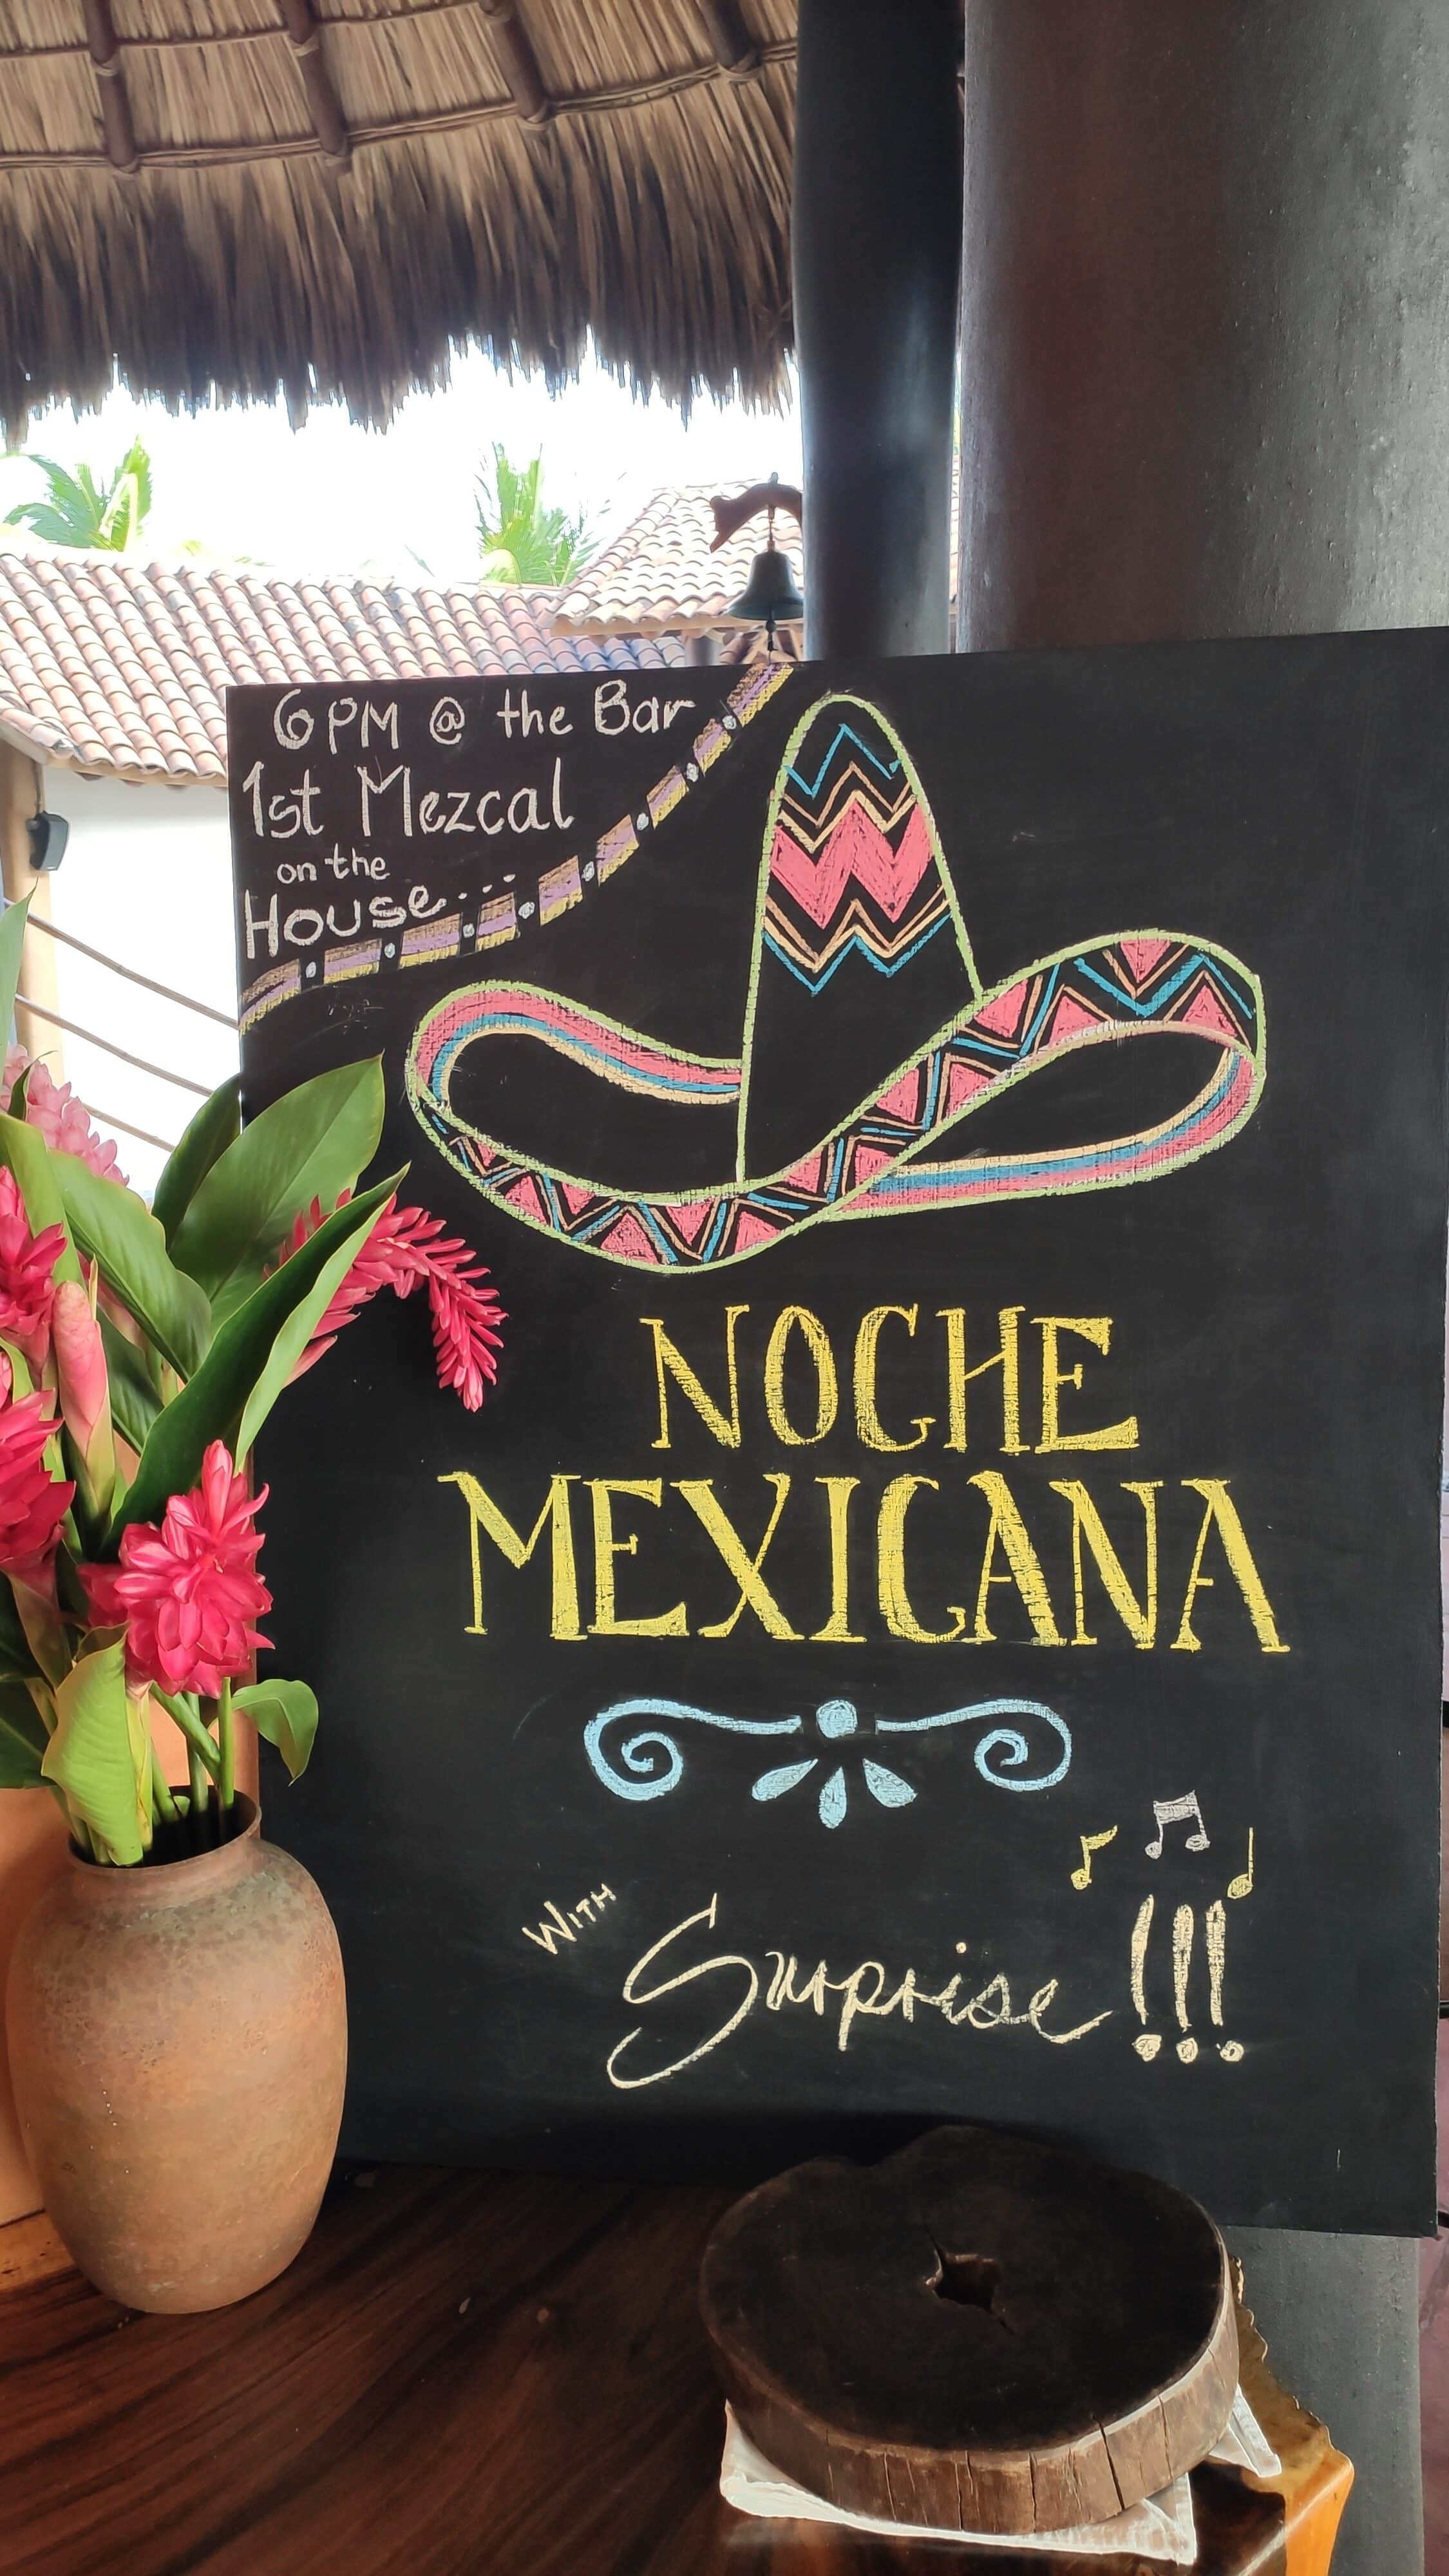 6PM @ the Bar
1st Mezcal
on the
House...
NOCHE
MEXICANA
WITH
Surprise!!!